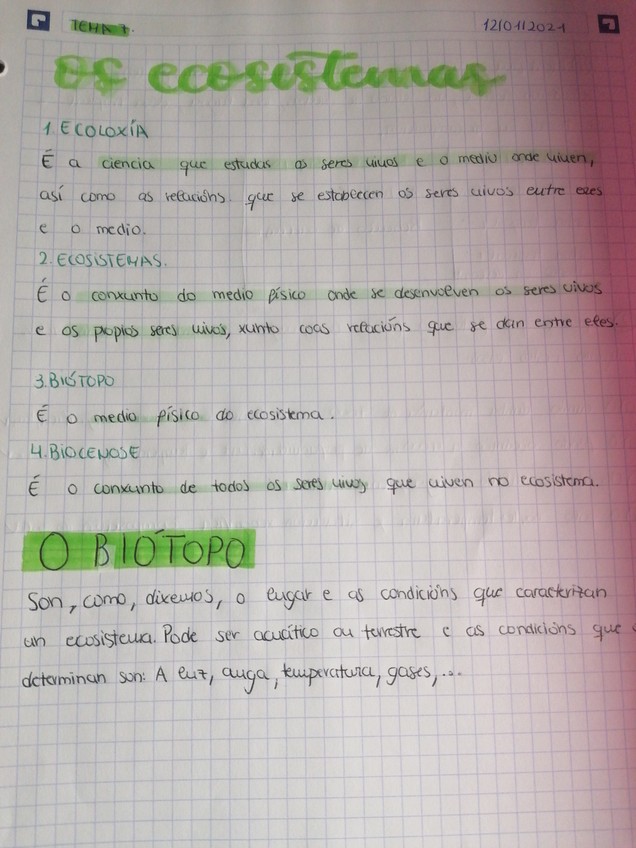 TEMA 7.
12/01/2021
os ecosistemas
1. ECOLOXÍA
É a ciencia que estudas os seres vivos e o medio onde viven,
así como as relacións que se establecen os seres vivos entre eles
e o medio.
2. ECOSISTEMAS.
É o conxunto do medio físico onde se desenvolven os seres vivos
e os propios seres vivos, xunto coas relacións que se dan entre eles.
3. BIÓTOPO
É o medio físico do ecosistema.
4. BIOCENOSE
É o conxunto de todos os seres vivos que viven no ecosistema.
O BIÓTOPO
Son, como, dixemos, o lugar e as condicións que caracterizan
un ecosistema. Pode ser acuático ou terrestre e as condicións que
determinan son: A luz, auga, temperatura, gases,...